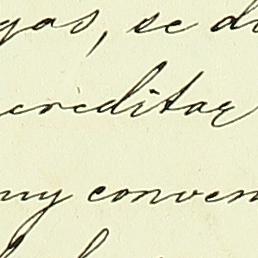 gas, se di
creditar
my conven